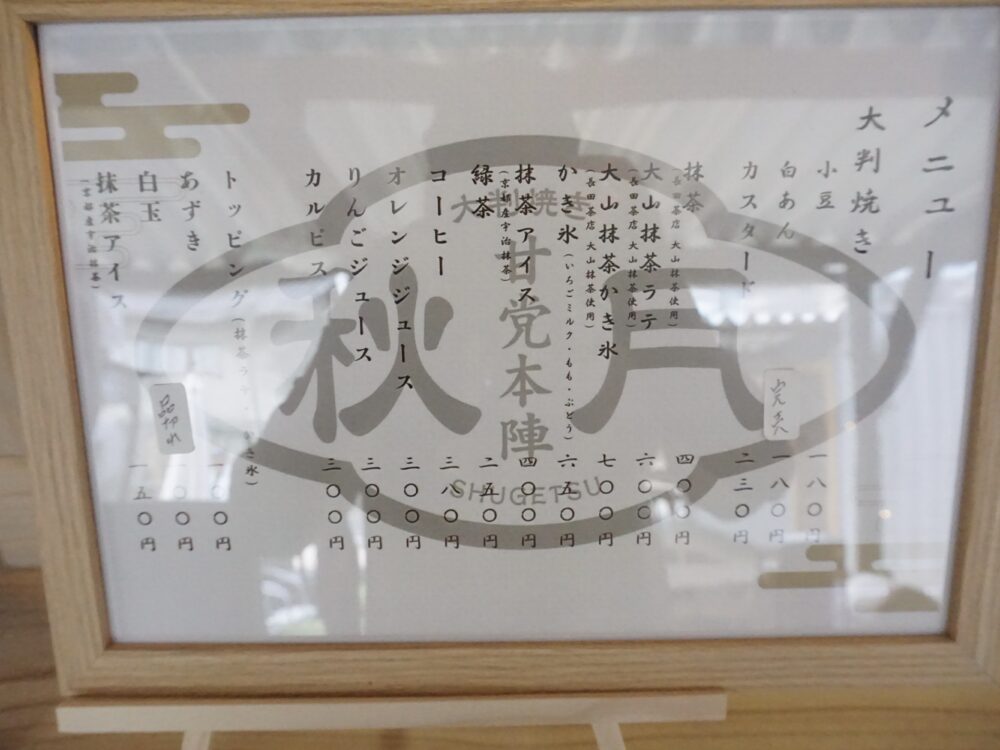 メニュー
大判焼き
小豆 一八〇円
白あん 一八〇円
完売
カスタード 二三〇円
抹茶 四〇〇円
(長田茶店 大山抹茶使用)
大山抹茶ラテ 六〇〇円
(長田茶店 大山抹茶使用)
大山抹茶かき氷 七〇〇円
(長田茶店 大山抹茶使用)
かき氷(いちごミルク・もも・ぶどう) 六五〇円
抹茶アイス 四〇〇円
(京都産宇治抹茶)
緑茶 二五〇円
コーヒー 三八〇円
オレンジジュース 三〇〇円
りんごジュース 三〇〇円
カルピス 三〇〇円
トッピング(抹茶ラテ・かき氷)
あずき 一〇〇円
白玉 一〇〇円
品切れ
抹茶アイス 一五〇円
(京都産宇治抹茶)
大判焼き
甘党本陣
秋月
SHUGETSU